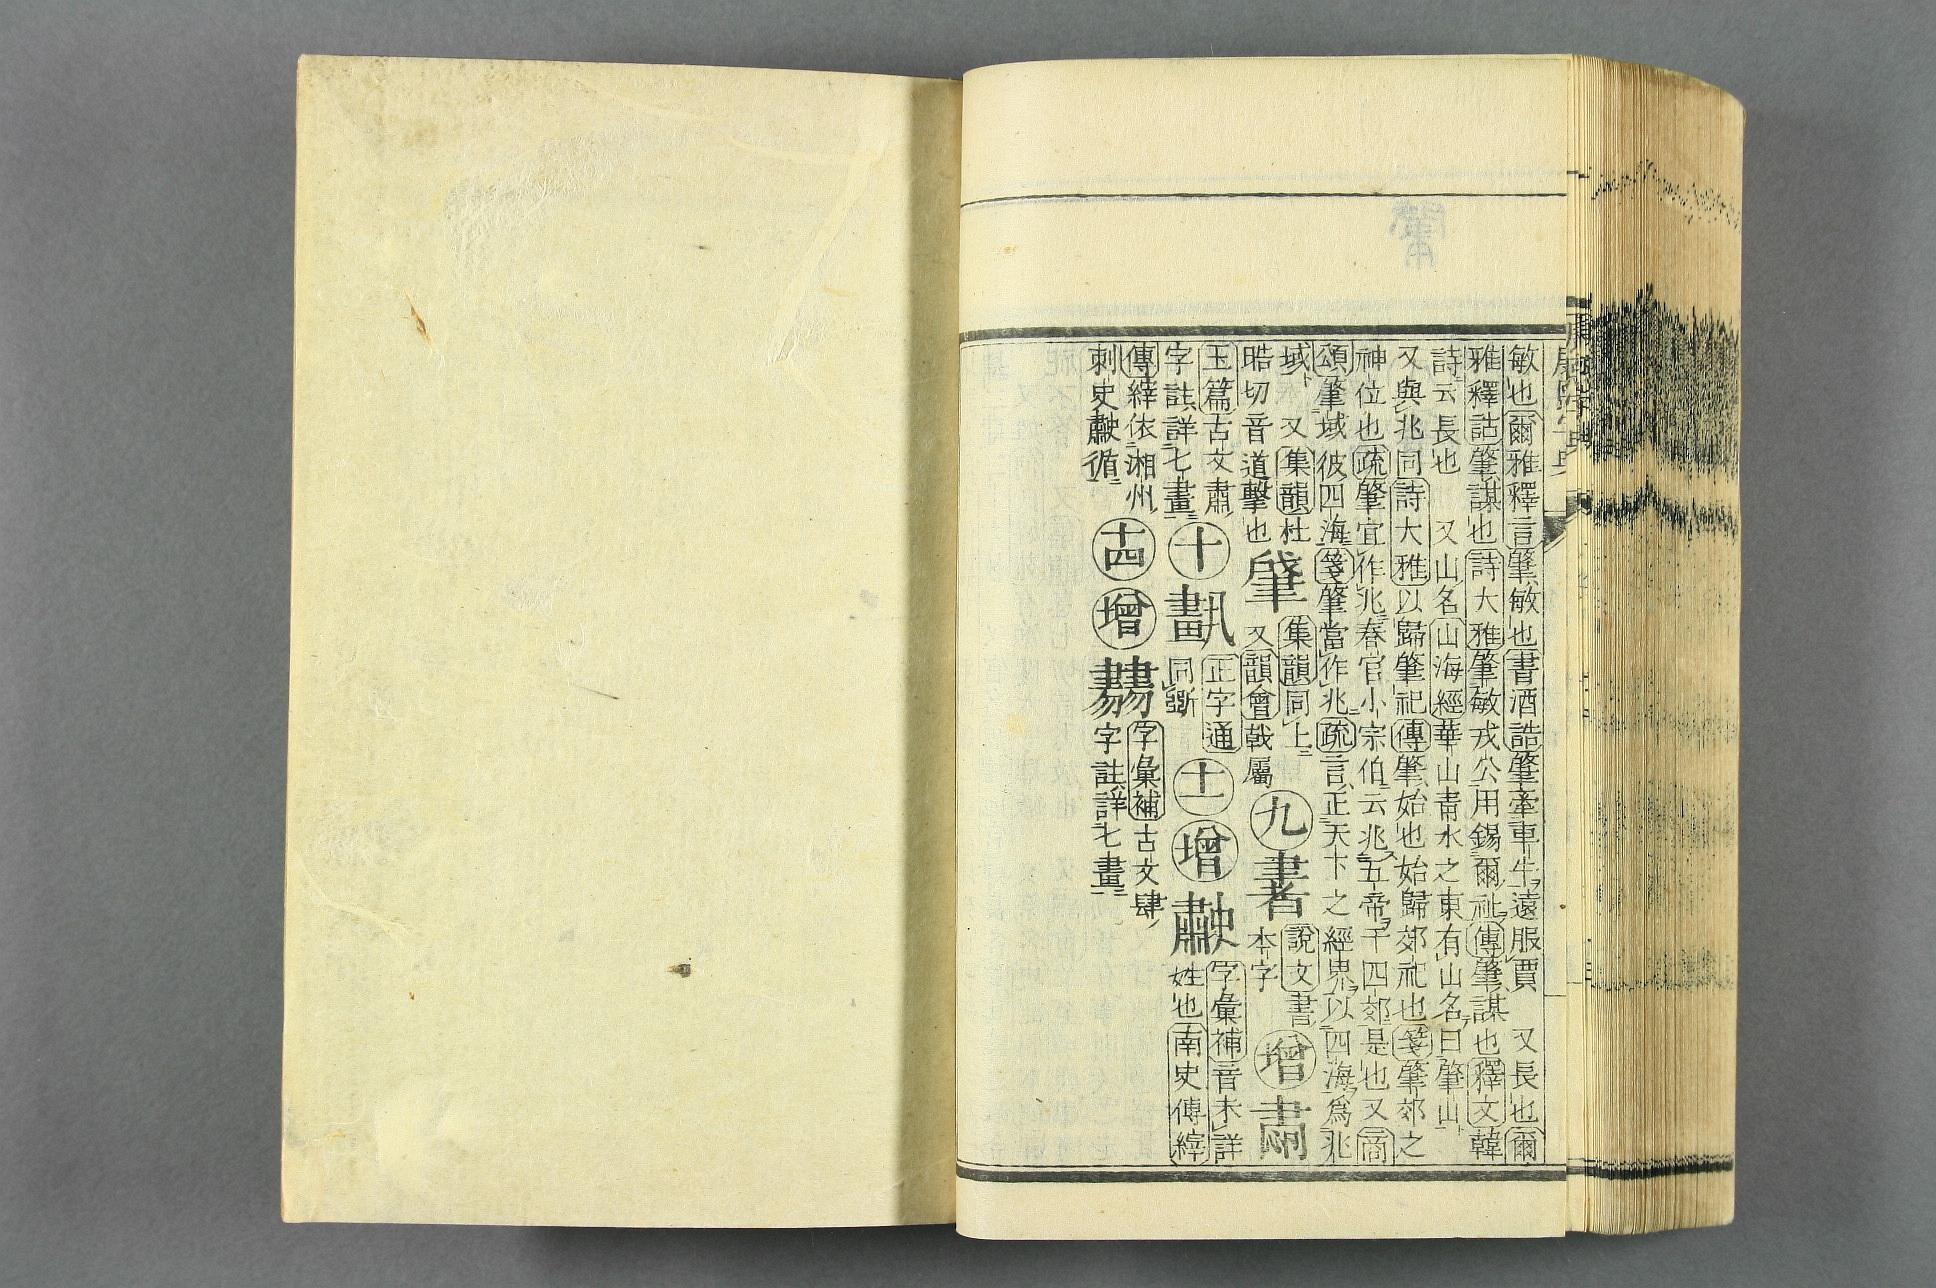 敏也爾雅釋言肇敏也書酒誥肇牽車牛遠服賈　又長也爾
雅釋詁肇謀也詩大雅肇敏戎公用錫爾祉傳肇謀也釋文韓
詩云長也　又山名山海經華山青水之東有山名曰肇山
又與兆同詩大雅以歸肇祀傳肇始也始歸郊祀也箋肇郊之
神位也疏肇宜作兆春官小宗伯云兆五帝于四郊是也又商
頌肇域彼四海箋肇當作兆疏言正天下之經界以四海爲兆
域　又集韻杜
晧切音道擊也
肈
集韻同上
又韻會戟屬
九
書
說文書
本字
增
肅
玉篇古文肅
字註詳七畫
十
畫
正字通
同斷
十一
增
字彙補音未詳
姓也南史傅縡
傳縡依湘州
刺史蕭循
十四
增
字彙補古文肆
字註詳七畫